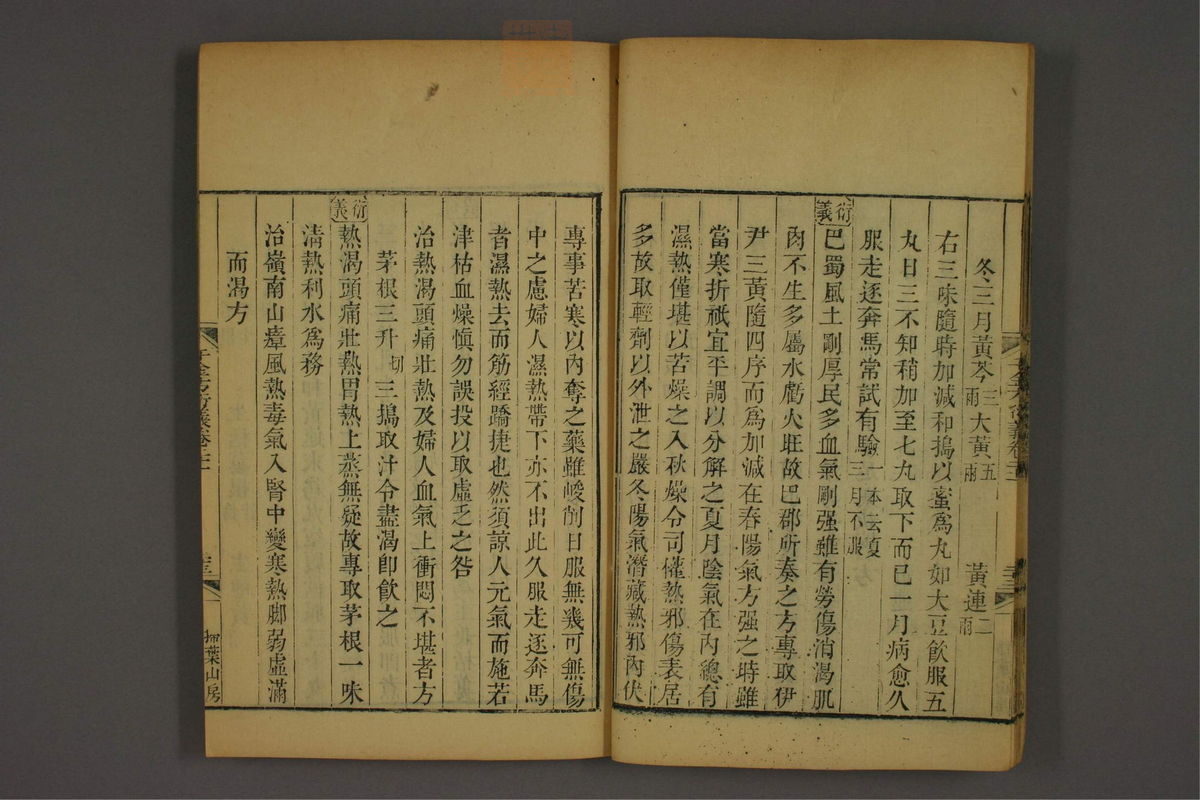 冬三月黃芩三兩大黃五兩 黃連二兩
右三味隨時加減和搗以蜜爲丸如大豆飲服五
丸日三不知稍加至七丸取下而已一月病愈久
服走逐奔馬常試有驗一本云夏三月不服
衍義
巴蜀風土剛厚民多血氣剛强雖有勞傷消渴肌
肉不生多屬水虧火旺故巴郡所奏之方專取伊
尹三黃隨四序而爲加減在春陽氣方强之時雖
當寒折祇宜平調以分解之夏月陰氣在內總有
濕熱僅堪以苦燥之入秋燥令司權熱邪傷表居
多故取輕劑以外泄之嚴冬陽氣潛藏熱邪內伏
專事苦寒以內奪之藥雖峻削日服無幾可無傷
中之慮婦人濕熱帶下亦不出此久服走逐奔馬
者濕熱去而筋經蹻捷也然須諒人元氣而施若
津枯血燥愼勿誤投以取虛乏之咎
治熱渴頭痛壯熱及婦人血氣上衝悶不堪者方
茅根三升切三搗取汁令盡渴卽飲之
衍義
熱渴頭痛壯熱胃熱上蒸無疑故專取茅根一味
淸熱利水爲務
治嶺南山瘴風熱毒氣入腎中變寒熱脚弱虛滿
而渴方
掃葉山房